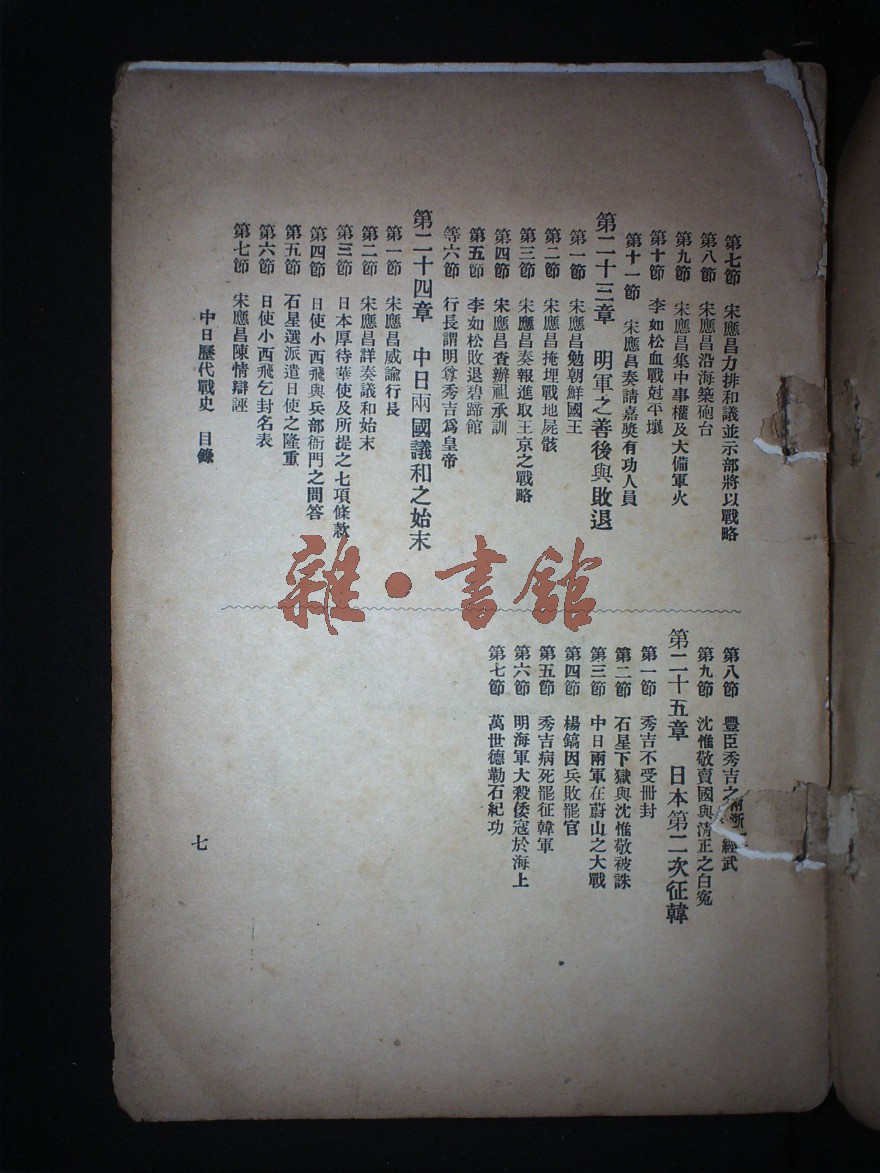 第七節　宋應昌力排和議並示部將以戰略
第八節　宋應昌沿海築砲台
第九節　宋應昌集中事權及大備軍火
第十節　李如松血戰尅平壤
第十一節　宋應昌奏請嘉獎有功人員
第二十三章　明軍之善後與敗退
第一節　宋應昌勉朝鮮國王
第二節　宋應昌掩埋戰地屍骸
第三節　宋應昌奏報進取王京之戰略
第四節　宋應昌查辦祖承訓
第五節　李如松敗退碧蹄館
等六節　行長謂明尊秀吉爲皇帝
第二十四章　中日兩國議和之始末
第一節　宋應昌威諭行長
第二節　宋應昌詳奏議和始末
第三節　日本厚待華使及所提之七項條款
第四節　日使小西飛與兵部衙門之問答
第五節　石星選派遣日使之隆重
第六節　日使小西飛乞封名表
第七節　宋應昌陳情辯誣
第八節　豐臣秀吉之經武
第九節　沈惟敬賣國與清正之白冤
第二十五章　日本第二次征韓
第一節　秀吉不受冊封
第二節　石星下獄與沈惟敬被誅
第三節　中日兩軍在蔚山之大戰
第四節　楊鎬因兵敗罷官
第五節　秀吉病死罷征韓軍
第六節　明海軍大殺倭寇於海上
第七節　萬世德勒石紀功
中日歷代戰史　目錄
七
雜·書館